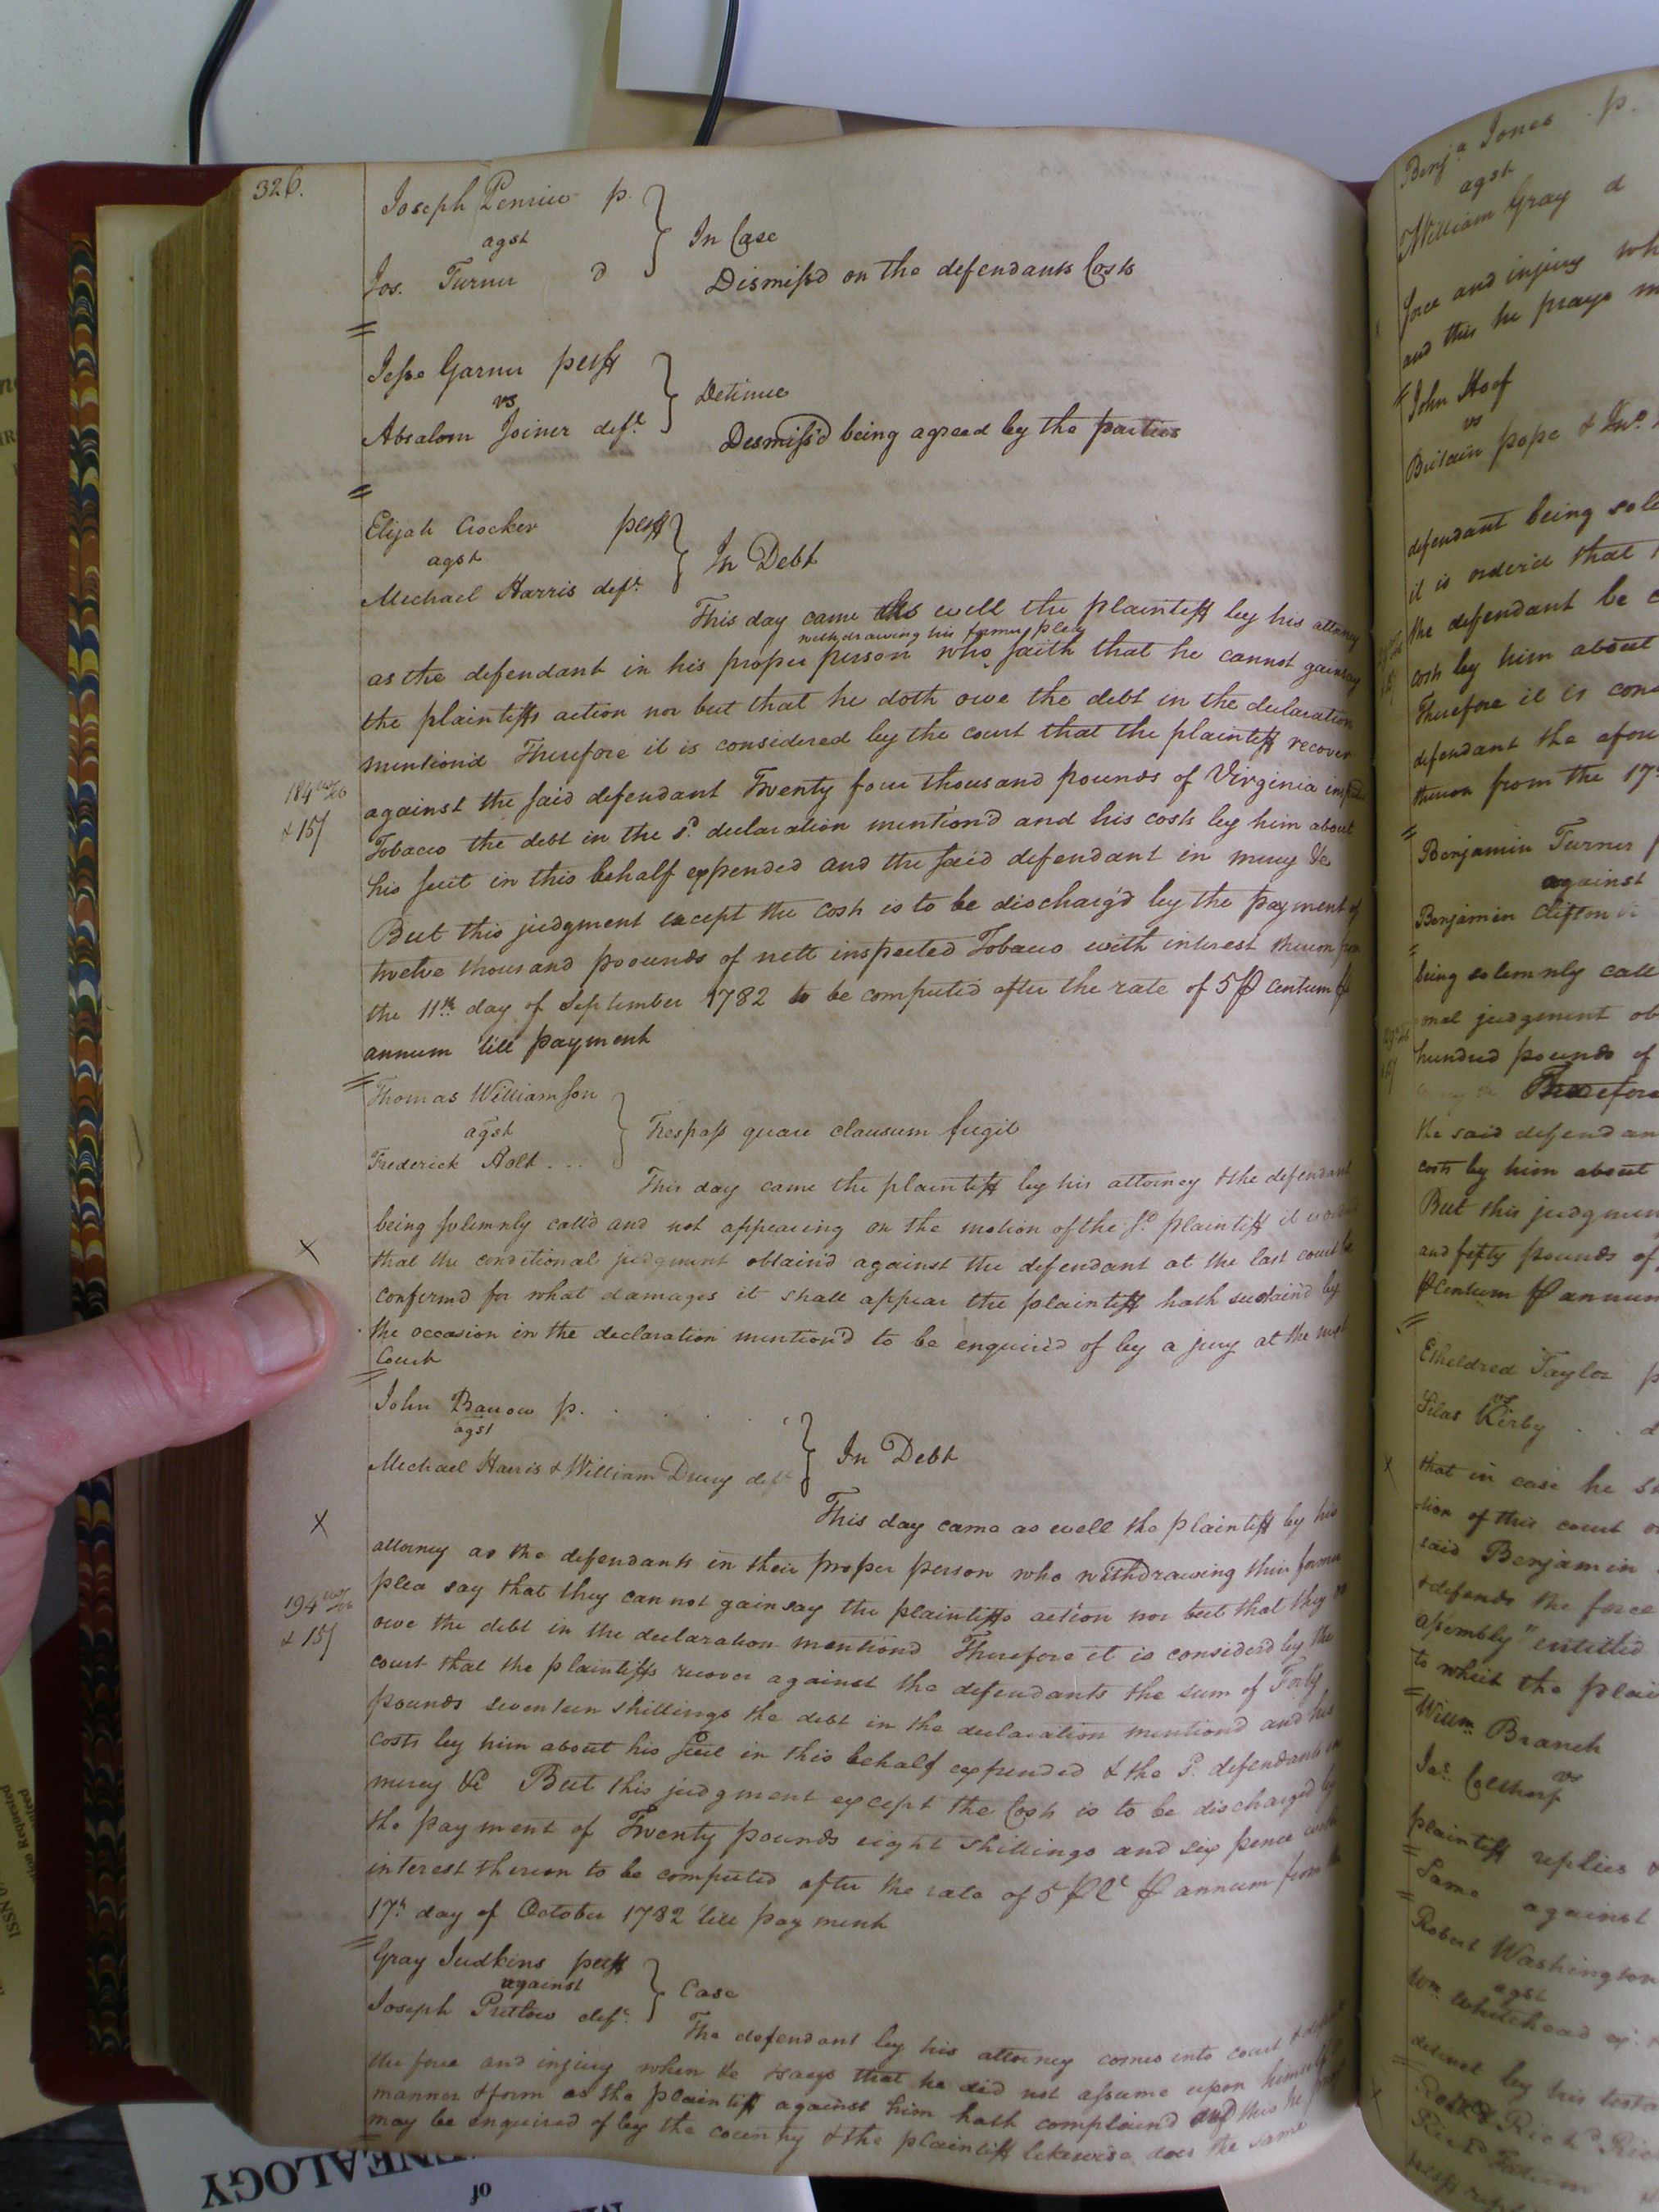 326.
Joseph Pennie p.
agst
Jos. Turner d
In Case
Dismiss'd on the defendants Costs
Jesse Garner pltff
vs
Absalom Joiner deft.
Detinue
Desmiss'd being agreed by the parties
Elijah Crocker pltff
agst
Michael Harris deft.
In Debt
This day came as well the plaintiff by his attorney
withdrawing his former plea
as the defendant in his proper person who saith that he cannot gainsay
the plaintiffs action nor but that he doth owe the debt in the declaration
mention'd Therefore it is considered by the court that the plaintiff recover
184
against the said defendant Twenty four thousand pounds of Virginia
& 15/
Tobacco the debt in the sd. declaration mention'd and his costs by him about
his suit in this behalf expended and the said defendant in mercy &c
But this judgment except the costs is to be discharg'd by the payment of
twelve thousand poounds of nett inspected Tobacco with interest thereon from
the 11th. day of September 1782 to be computed after the rate of 5 ⅌ Centum ⅌
annum till payment
Thomas Williamson
agst
Frederick Holt...
Trespass quare clausum fregit
This day came the plaintiff by his attorney & the defendant
being solemnly call'd and not appearing on the motion of the sd. plaintiff it is
X
that the conditional judgment obtain'd against the defendant at the last court be
confirm'd for what damages it shall appear the plaintiff hath sustain'd by
the occasion in the declaration mention'd to be enquired of by a jury at the next
Court
John Barrow p.
agst
Michael Harris & William Drury defts
In Debt
X
This day came as well the plaintiff by his
attorney as the defendants in their proper person who withdrawing their former
194
plea say that they can not gainsay the plaintiffs action nor but that they do
& 15/
owe the debt in the declaration mentiond Therefore it is considerd by the
court that the plaintiffs recover against the defendants the sum of Forty
pounds seventeen shillings the debt in the declaration mentiond and his
costs by him about his suit in this behalf expended & the sd. defendants in
mercy &c But this judgment except the Costs is to be discharged by
the payment of Twenty pounds eight shillings and six pence with
interest thereon to be computed after the rate of 5 ⅌ Ct ⅌ annum from the
17th. day of October 1782 till payment
Gray Judkins pltff
against
Joseph Pretlow deft.
Case
The defendant by his attorney comes into court & defends
the force and injury when &c & says that he did not assume upon himself in
manner & form as the plaintiff against him hath complaind and this he prays
may be enquired of by the country & the plaintiff likewise does the same
Benja. Jones p.
agst
William Gray d
force and injury
and this he prays
John Hoof
vs
Britain pope & Jno.
defendant being
it is order'd that
the defendant be
costs by him about
Therefore it is
defendant the
thereon from the
Benjamin Turner
against
Benjamin Clifton
being solemnly
judgment
hundred pounds of
Therefore
the said
costs by him about
But this
and fifty pounds of
⅌ Centum ⅌ annum
Etheldred Taylor
vs
Silas Kirby
X
that in case he
tion of this court
said Benjamin
& defends the force
assembly" entitled
to which the
Willm. Branch
vs
Jas. Calthorp
plaintiff replies
Same
against
Robert Washington
agst
Wm. Whitehead
GENEALOGY
of
ISSN